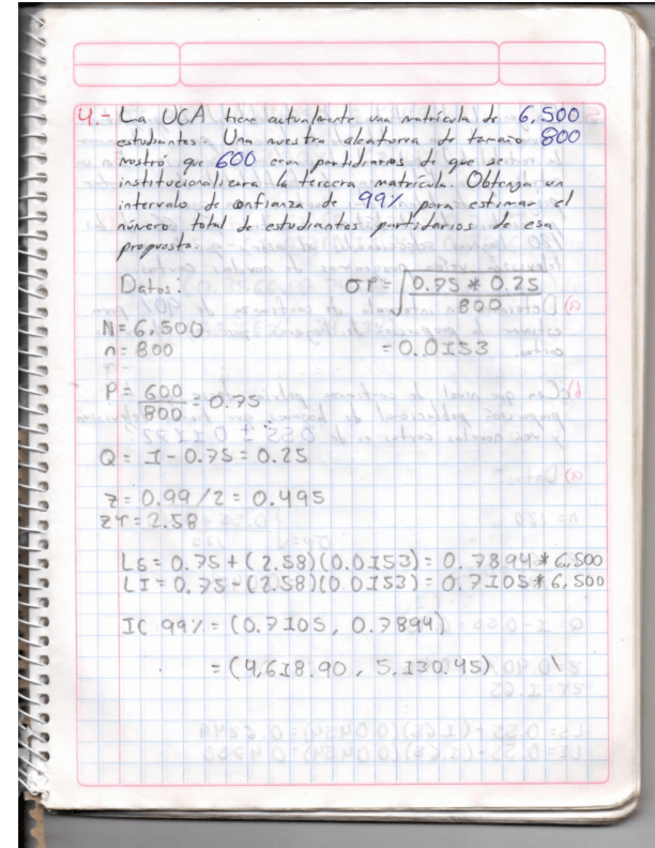 4.- La UCA tiene actualmente una matrícula de 6,500
estudiantes. Una muestra aleatoria de tamaño 800
mostró que 600 eran partidarios de que se
institucionalizara la tercera matrícula. Obtenga un
intervalo de confianza de 99% para estimar el
número total de estudiantes partidarios de esa
propuesta.
Datos:
σP = √0.75 * 0.25
800
N = 6,500
n = 800
= 0.0153
P = 600 = 0.75
800
Q = 1 - 0.75 = 0.25
z = 0.99/2 = 0.495
zT = 2.58
LS = 0.75 + (2.58)(0.0153) = 0.7894 * 6,500
LI = 0.75 - (2.58)(0.0153) = 0.7105 * 6,500
IC 99% = (0.7105, 0.7894)
= (4,618.90, 5,130.45)